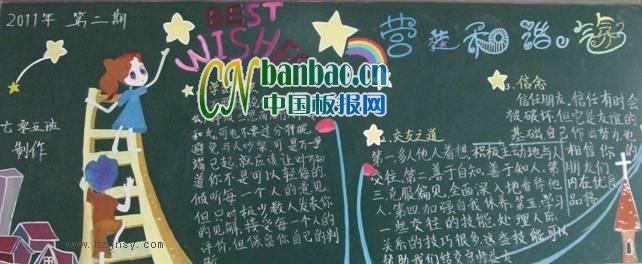 2011年 第二期
七零五班
制作
BEST
WISHES
CN banbao.cn
中国板报网
和友，可也不要过分律眠，
避免与人吵架，可是万一事
端已起，就应该让对方知
道你不是可以轻侮的，
倾听每一个人的意见，
但只对极少数人发表你
的见解，接受每一个人的
评价，但保留你自己的判
断
营造和谐。
2、交友之道
第一，多人他人着想，积极主动地与人
交往，第二，善于自知，善于知人，第
三，克服偏见，全面深入地看待他
人，第四，加强自我休养，第五，学习
一些交往的技能，处理人际
关系的技巧很多，这些技能可以
帮助我们结交
3、信念
信任朋友，信任有时会
被破坏，但它是友谊的
基础，自己作出努力也
相信你的
朋友们
内在优良
品格
www.hzjhsy.com